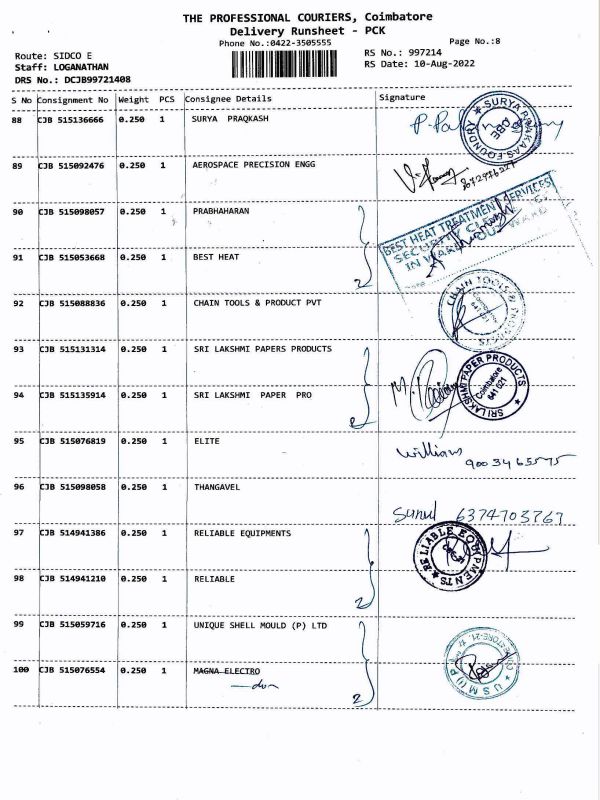 THE PROFESSIONAL COURIERS, Coimbatore
Delivery Runsheet - PCK
Phone No.:0422-3505555
Page No.:8
Route: SIDCO E
RS No.: 997214
Staff: LOGANATHAN
RS Date: 10-Aug-2022
DRS No.: DCJB99721408
S No Consignment No Weight PCS Consignee Details Signature
88 CJB 515136666 0.250 1 SURYA PRAQKASH
89 CJB 515092476 0.250 1 AEROSPACE PRECISION ENGG
90 CJB 515098057 0.250 1 PRABHAHARAN
BEST HEAT TREATMENT SERVICES
91 CJB 515053668 0.250 1 BEST HEAT
2
92 CJB 515088836 0.250 1 CHAIN TOOLS & PRODUCT PVT
CHAIN TOOLS & PRODUCTS
93 CJB 515131314 0.250 1 SRI LAKSHMI PAPERS PRODUCTS
SRI LAKSHMI PAPER PRODUCTS
Coimbatore
641 021
94 CJB 515135914 0.250 1 SRI LAKSHMI PAPER PRO
95 CJB 515076819 0.250 1 ELITE
William
9003465575
96 CJB 515098058 0.250 1 THANGAVEL
6374703767
97 CJB 514941386 0.250 1 RELIABLE EQUIPMENTS
RELIABLE EQUIPMENTS
98 CJB 514941210 0.250 1 RELIABLE
2
99 CJB 515059716 0.250 1 UNIQUE SHELL MOULD (P) LTD
100 CJB 515076554 0.250 1 MAGNA ELECTRO
2